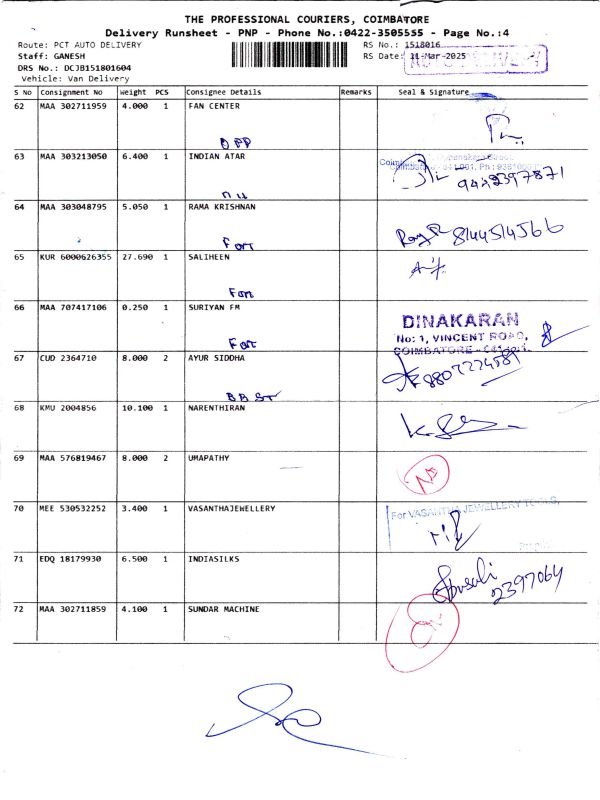 THE PROFESSIONAL COURIERS, COIMBATORE
Delivery Runsheet - PNP - Phone No.:0422-3505555 - Page No.:4
Route: PCT AUTO DELIVERY
RS No.: 1518016
Staff: GANESH
RS Date: 11-Mar-2025
DRS No.: DCJB151801604
Vehicle: Van Delivery
S NO Consignment No Weight PCS Consignee Details Remarks Seal & Signature
62 MAA 302711959 4.000 1 FAN CENTER
OPP
63 MAA 303213050 6.400 1 INDIAN ATAR
9442397871
64 MAA 303048795 5.050 1 RAMA KRISHNAN
Fort
8144514566
65 KUR 6000626355 27.690 1 SALIHEEN
Fort
66 MAA 707417106 0.250 1 SURIYAN FM
DINAKARAN
No: 1, VINCENT ROAD,
COIMBATORE - 641 001.
Fort
67 CUD 2364710 8.000 2 AYUR SIDDHA
BB ST
68 KMU 2004856 10.100 1 NARENTHIRAN
69 MAA 576819467 8.000 2 UMAPATHY
70 MEE 530532252 3.400 1 VASANTHAJEWELLERY
For VASANTHA JEWELLERY TOOLS,
71 EDQ 18179930 6.500 1 INDIASILKS
2397064
72 MAA 302711859 4.100 1 SUNDAR MACHINE